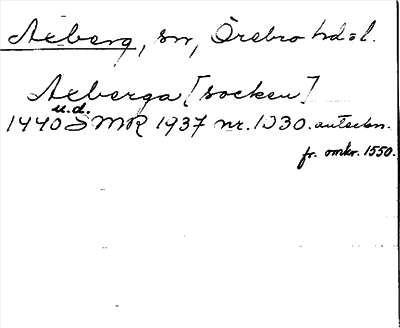 Axberg, sn, Örebro hd:l.
Axberga [socken]
u.d.
1440 SMR 1937 nr. 1030. anteckn.
fr. omkr. 1550.